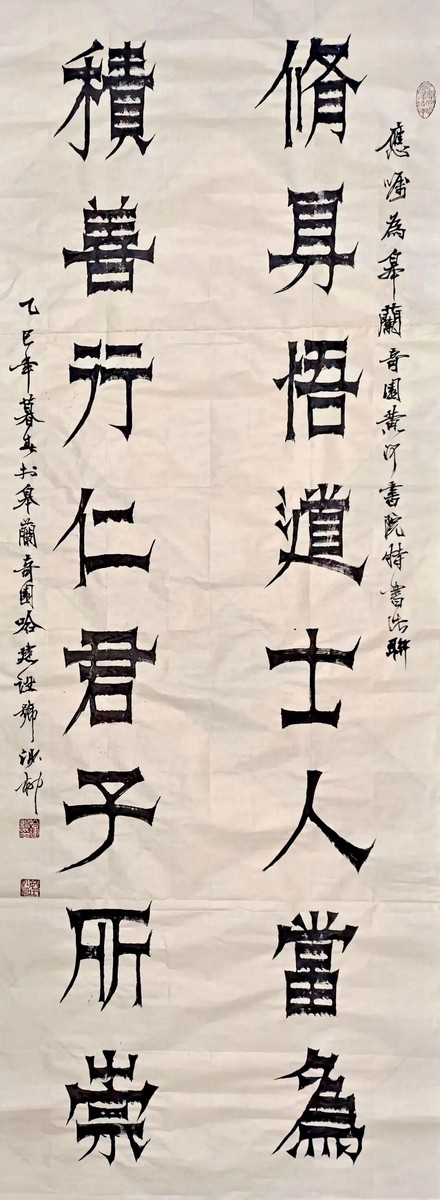 應囑為皋蘭奇園黃河書院特書此聯
脩身悟道士人當為
積善行仁君子所崇
乙巳年暮春於皋蘭奇園哈建設號